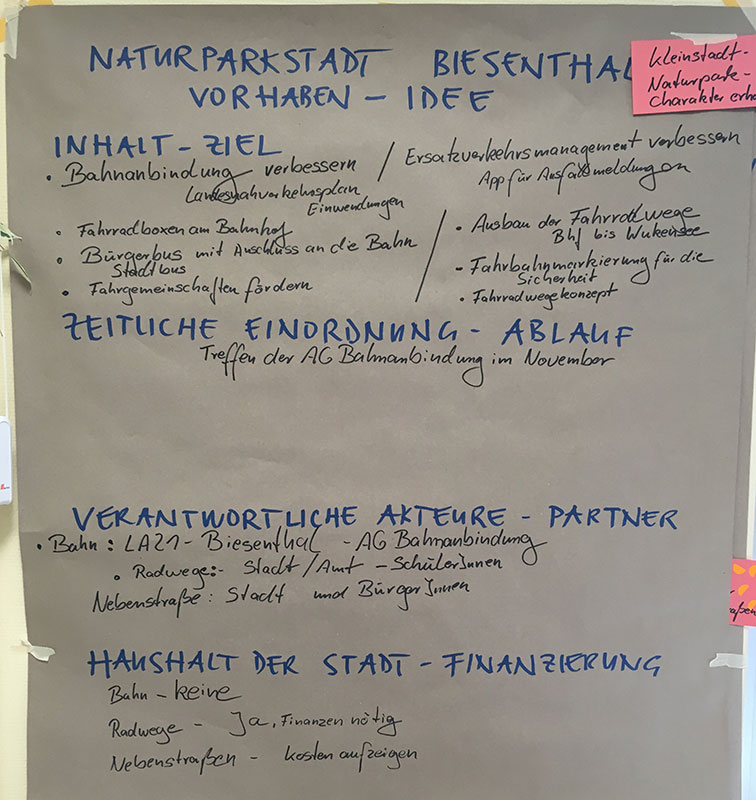 NATURPARKSTADT BIESENTHAL
VORHABEN – IDEE
Kleinstadt-
Naturpark-
Charakter
INHALT – ZIEL
• Bahnanbindung verbessern / Ersatzverkehrsmanagement verbessern
Landesnahverkehrsplan
Einwendungen
App für Ausfallsmeldungen
• Fahrradboxen am Bahnhof
• Bürgerbus mit Anschluss an die Bahn
Stadtbus
• Fahrgemeinschaften fördern
/
• Ausbau der Fahrradwege
Bhf bis Wukensee
- Fahrbahnmarkierung für die
Sicherheit
• Fahrradwegekonzept
ZEITLICHE EINORDNUNG - ABLAUF
Treffen der AG Bahnanbindung im November
VERANTWORTLICHE AKTEURE - PARTNER
• Bahn: LA21 - Biesenthal - AG Bahnanbindung
• Radwege:- Stadt/Amt – SchülerInnen
Nebenstraße: Stadt und BürgerInnen
HAUSHALT DER STADT - FINANZIERUNG
Bahn – keine
Radwege – Ja, Finanzen nötig
Nebenstraßen – kosten aufzeigen